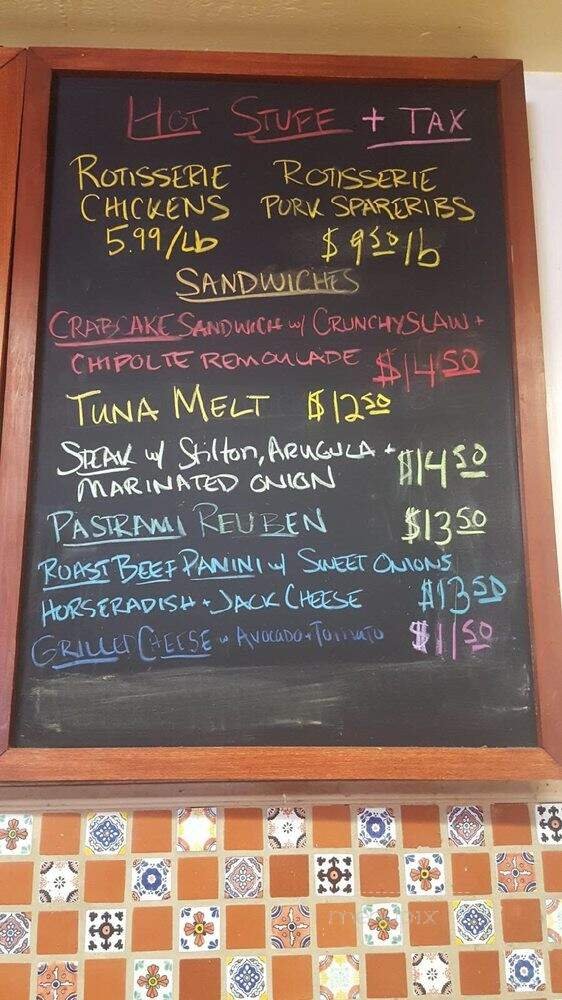 HOT STUFF + TAX
ROTISSERIE ROTISSERIE
CHICKENS PORK SPARERIBS
5.99/Lb $9.50/lb
SANDWICHES
CRABCAKE SANDWICH w/ CRUNCHY SLAW +
CHIPOLTE REMOULADE $14.50
TUNA MELT $12.50
STEAK w/ Stilton, ARUGULA +
MARINATED ONION $14.50
PASTRAMI REUBEN $13.50
ROAST BEEF PANINI w/ SWEET ONIONS
HORSERADISH + JACK CHEESE $13.50
GRILLED CHEESE w AVOCADO + TOMATO $11.50